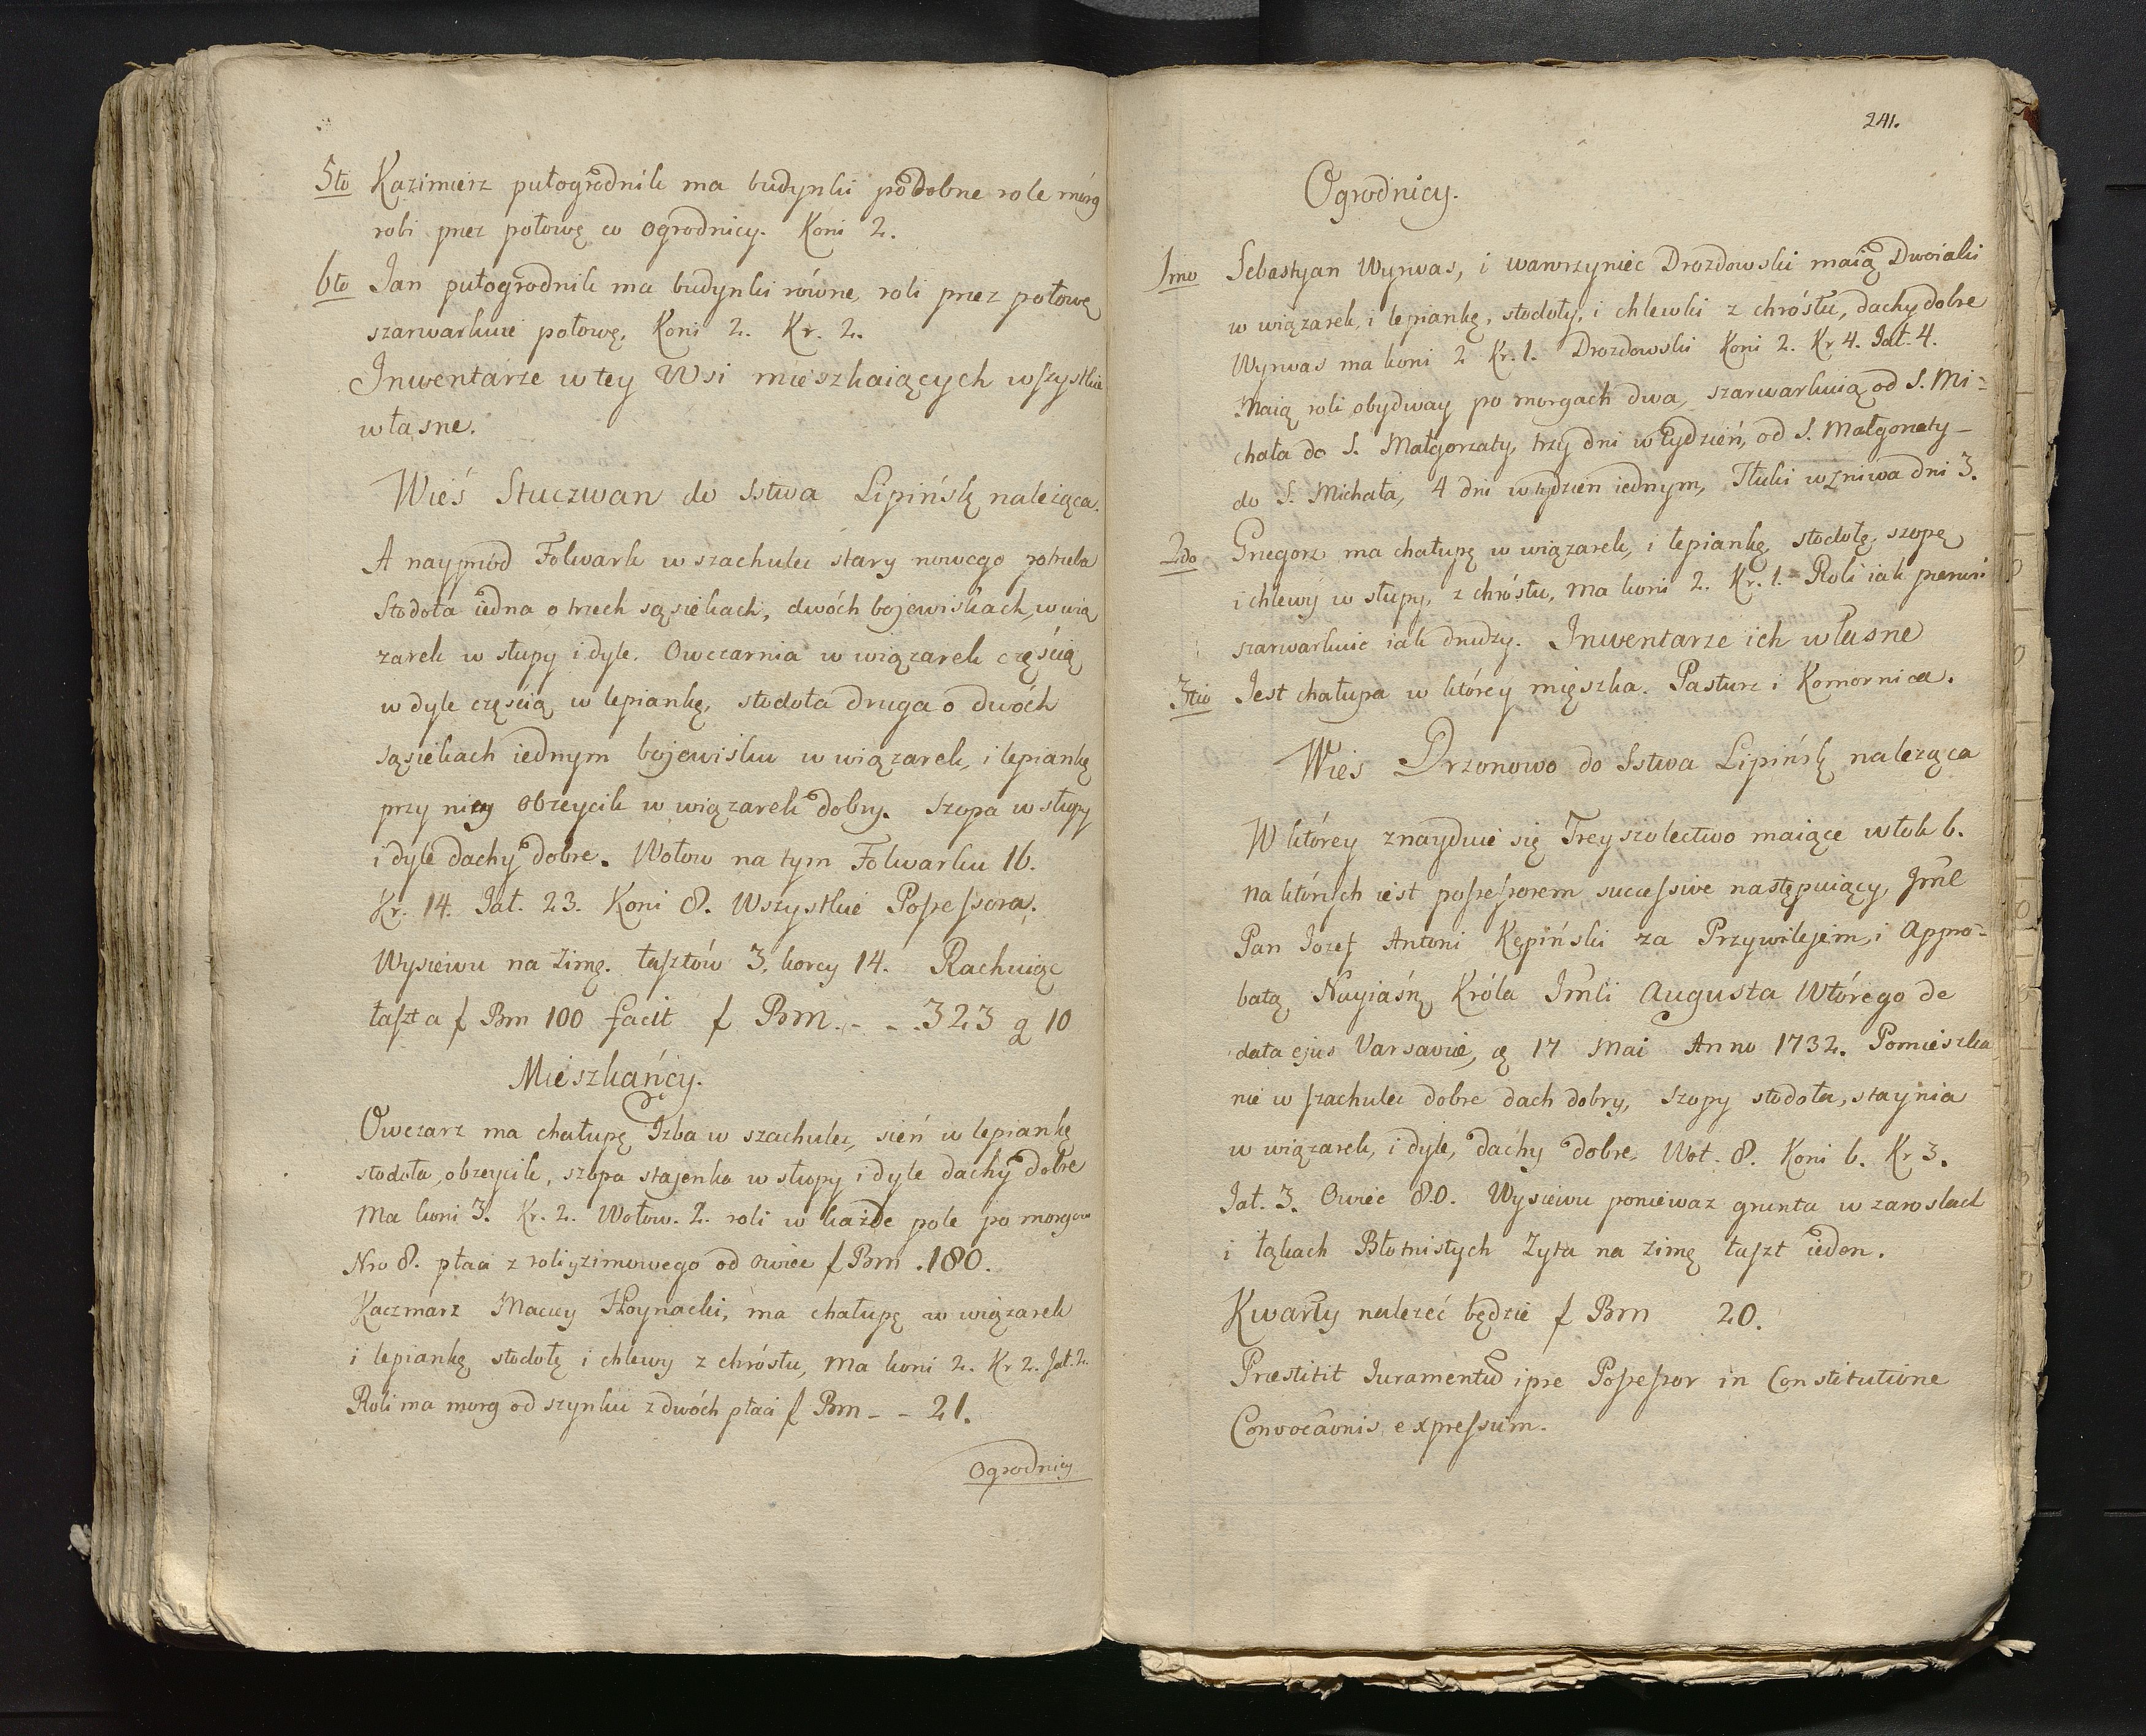 5to Kazimierz pułogrodnik ma budynki podobne role mórg
robi przez połowę co ogrodnicy. Koni 2.
6to Jan pułogrodnik ma budynki równe, roli przez połowę
szarwarkuie połowę, Koni 2. Kr. 2.
Inwentarze w tey Wsi mieszkaiących wszystkie
własne.
Wieś Stuczwan do Sstwa Lipińsk należąca.
A nayprzód Folwark w szachulec stary nowego potrzeba
Stodoła iedna o trzech sąsiekach, dwóch bojewiskach, w wią
zarek w słupy i dyle. Owczarnia w wiązarek częścią
w dyle częścią w lepiankę, stodoła druga o dwóch
sąsiekach iednym bojewisku w wiązarek, i lepiankę
przy niey obrzycik w wiązarek dobry. Szopa w słupy
i dyle dachy dobre. Wołow na tym Folwarku 16.
Kr. 14. Jał. 23. Koni 8. Wszystkie Possessora.
Wysiewu na Zimę. łasztów 3, korcy 14. Rachuiąc
łaszt a f Bm 100 facit f Bm. - - 323 g 10
Mieszkańcy.
Owczarz ma chałupę Izba w szachulec, sień w lepiankę
stodoła, obrzycik, szopa stajenka w słupy i dyle dachy dobre
Ma koni 3. Kr. 2. Wołow. 2. roli w każde pole po morgow
Nro 8. płaci z roli y zimowego od owiec f Bm . 180.
Kaczmarz Maciey Hoynacki, ma chałupę w wiązarek
i lepiankę stodołę i chlewy z chróstu, Ma koni 2. Kr 2. Jał. 2.
Roli ma morg od szynku z dwóch płaci f Bm - - 21.
Ogrodnicy
241.
Ogrodnicy.
1mo Sebastyan Wyrwas, i wawrzyniec Drozdowski maią Dwoiaki
w wiązarek, i lepiankę, stodoły, i chlewki z chróstu, dachy dobre
Wyrwas ma koni 2 Kr. 1. Drozdowski Koni 2. Kr 4. Jał. 4.
Maią roli obydway po morgach dwa, szarwarkuią od S. Mi-
chała do S. Małgorzaty, trzy dni w tydzień, od S. Małgorzaty -
do S. Michała, 4 dni w tydzień iednym, Tłuki w zniwa dni 3.
2do Grzegorz ma chałupę w wiązarek, i lepiankę stodołę, szopę
i chlewy w słupy, z chróstu, ma koni 2. Kr. 1. Roli iak pierwsi
szarwarkuie iak drudzy. Inwentarze ich własne
3tio Jest chałupa w którey mieszka. Pasturz i Komornica.
Wies Drzonowo do Sstwa Lipińsk naleząca
W którey znayduie się Freyszolectwo maiące włok 6.
na których iest possessorem successive następuiący, Jmć
Pan Jozef Antoni Kępiński za Przywilejem, i Appro-
batą Nayiaśń Króla Jmći Augusta Wtórego de
data ejus Varsaviæ, 17 Mai Anno 1732. Pomieszka
nie w szachulec dobre dach dobry, szopy stodoła, staynia
w wiązarek, i dyle, dachy dobre. Woł. 8. Koni 6. Kr 3.
Jał. 3. Owiec 80. Wysiewu poniewaz grunta w zaroslach
i łąkach Błotnistych Zyta na zimę łaszt ieden.
Kwarty nalezeć będzie f Bm 20.
Præstitit Juramentũ ipse Possessor in Constitutione
Convocãonis expressum.